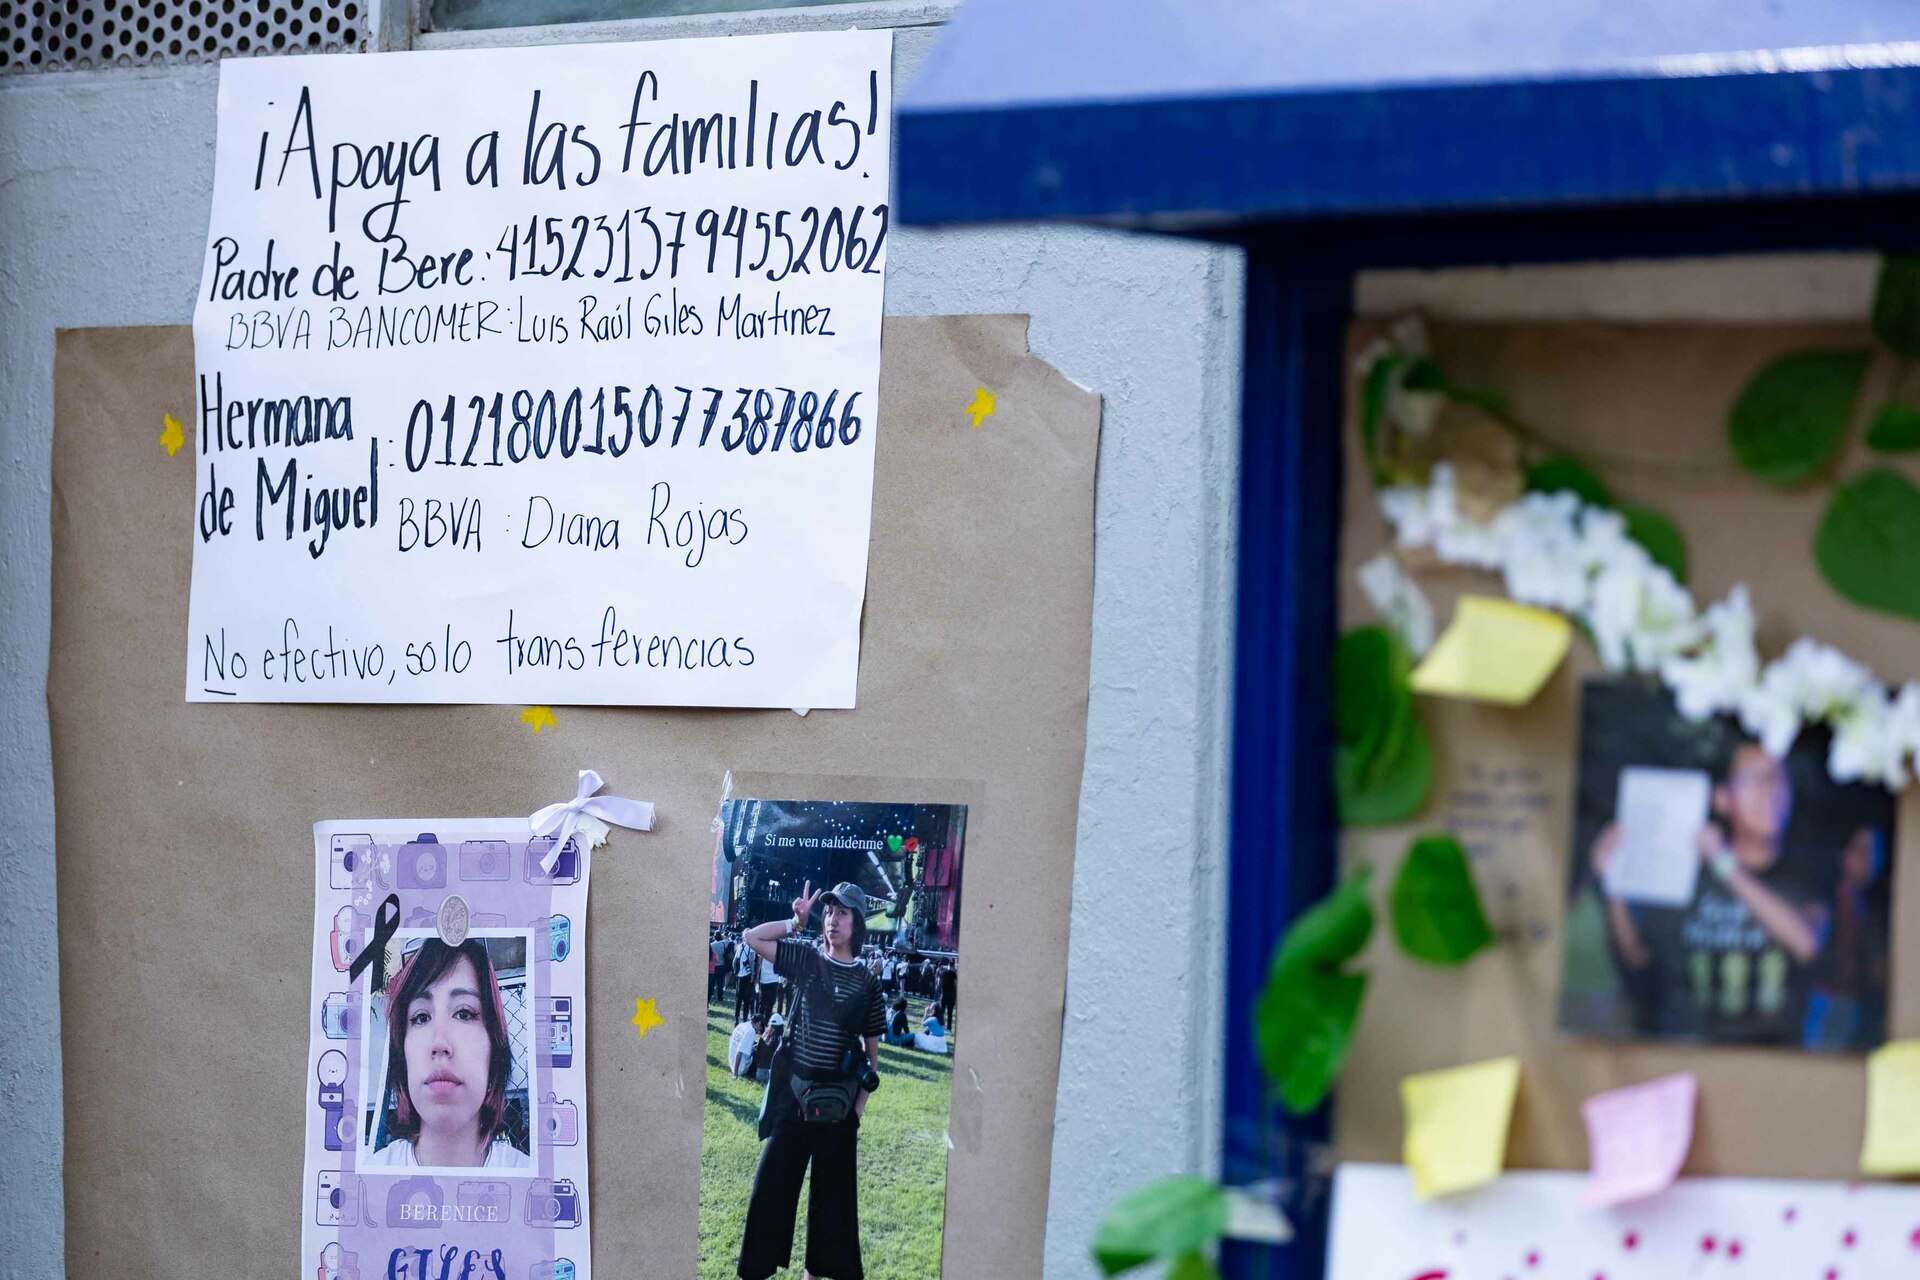 ¡Apoya a las familias!
Padre de Bere: 4152313794552062
BBVA BANCOMER: Luis Raúl Giles Martinez
Hermana de Miguel: 012180015077387866
BBVA: Diana Rojas
No efectivo, solo transferencias
Si me ven salúdenme
BERENICE
GILES